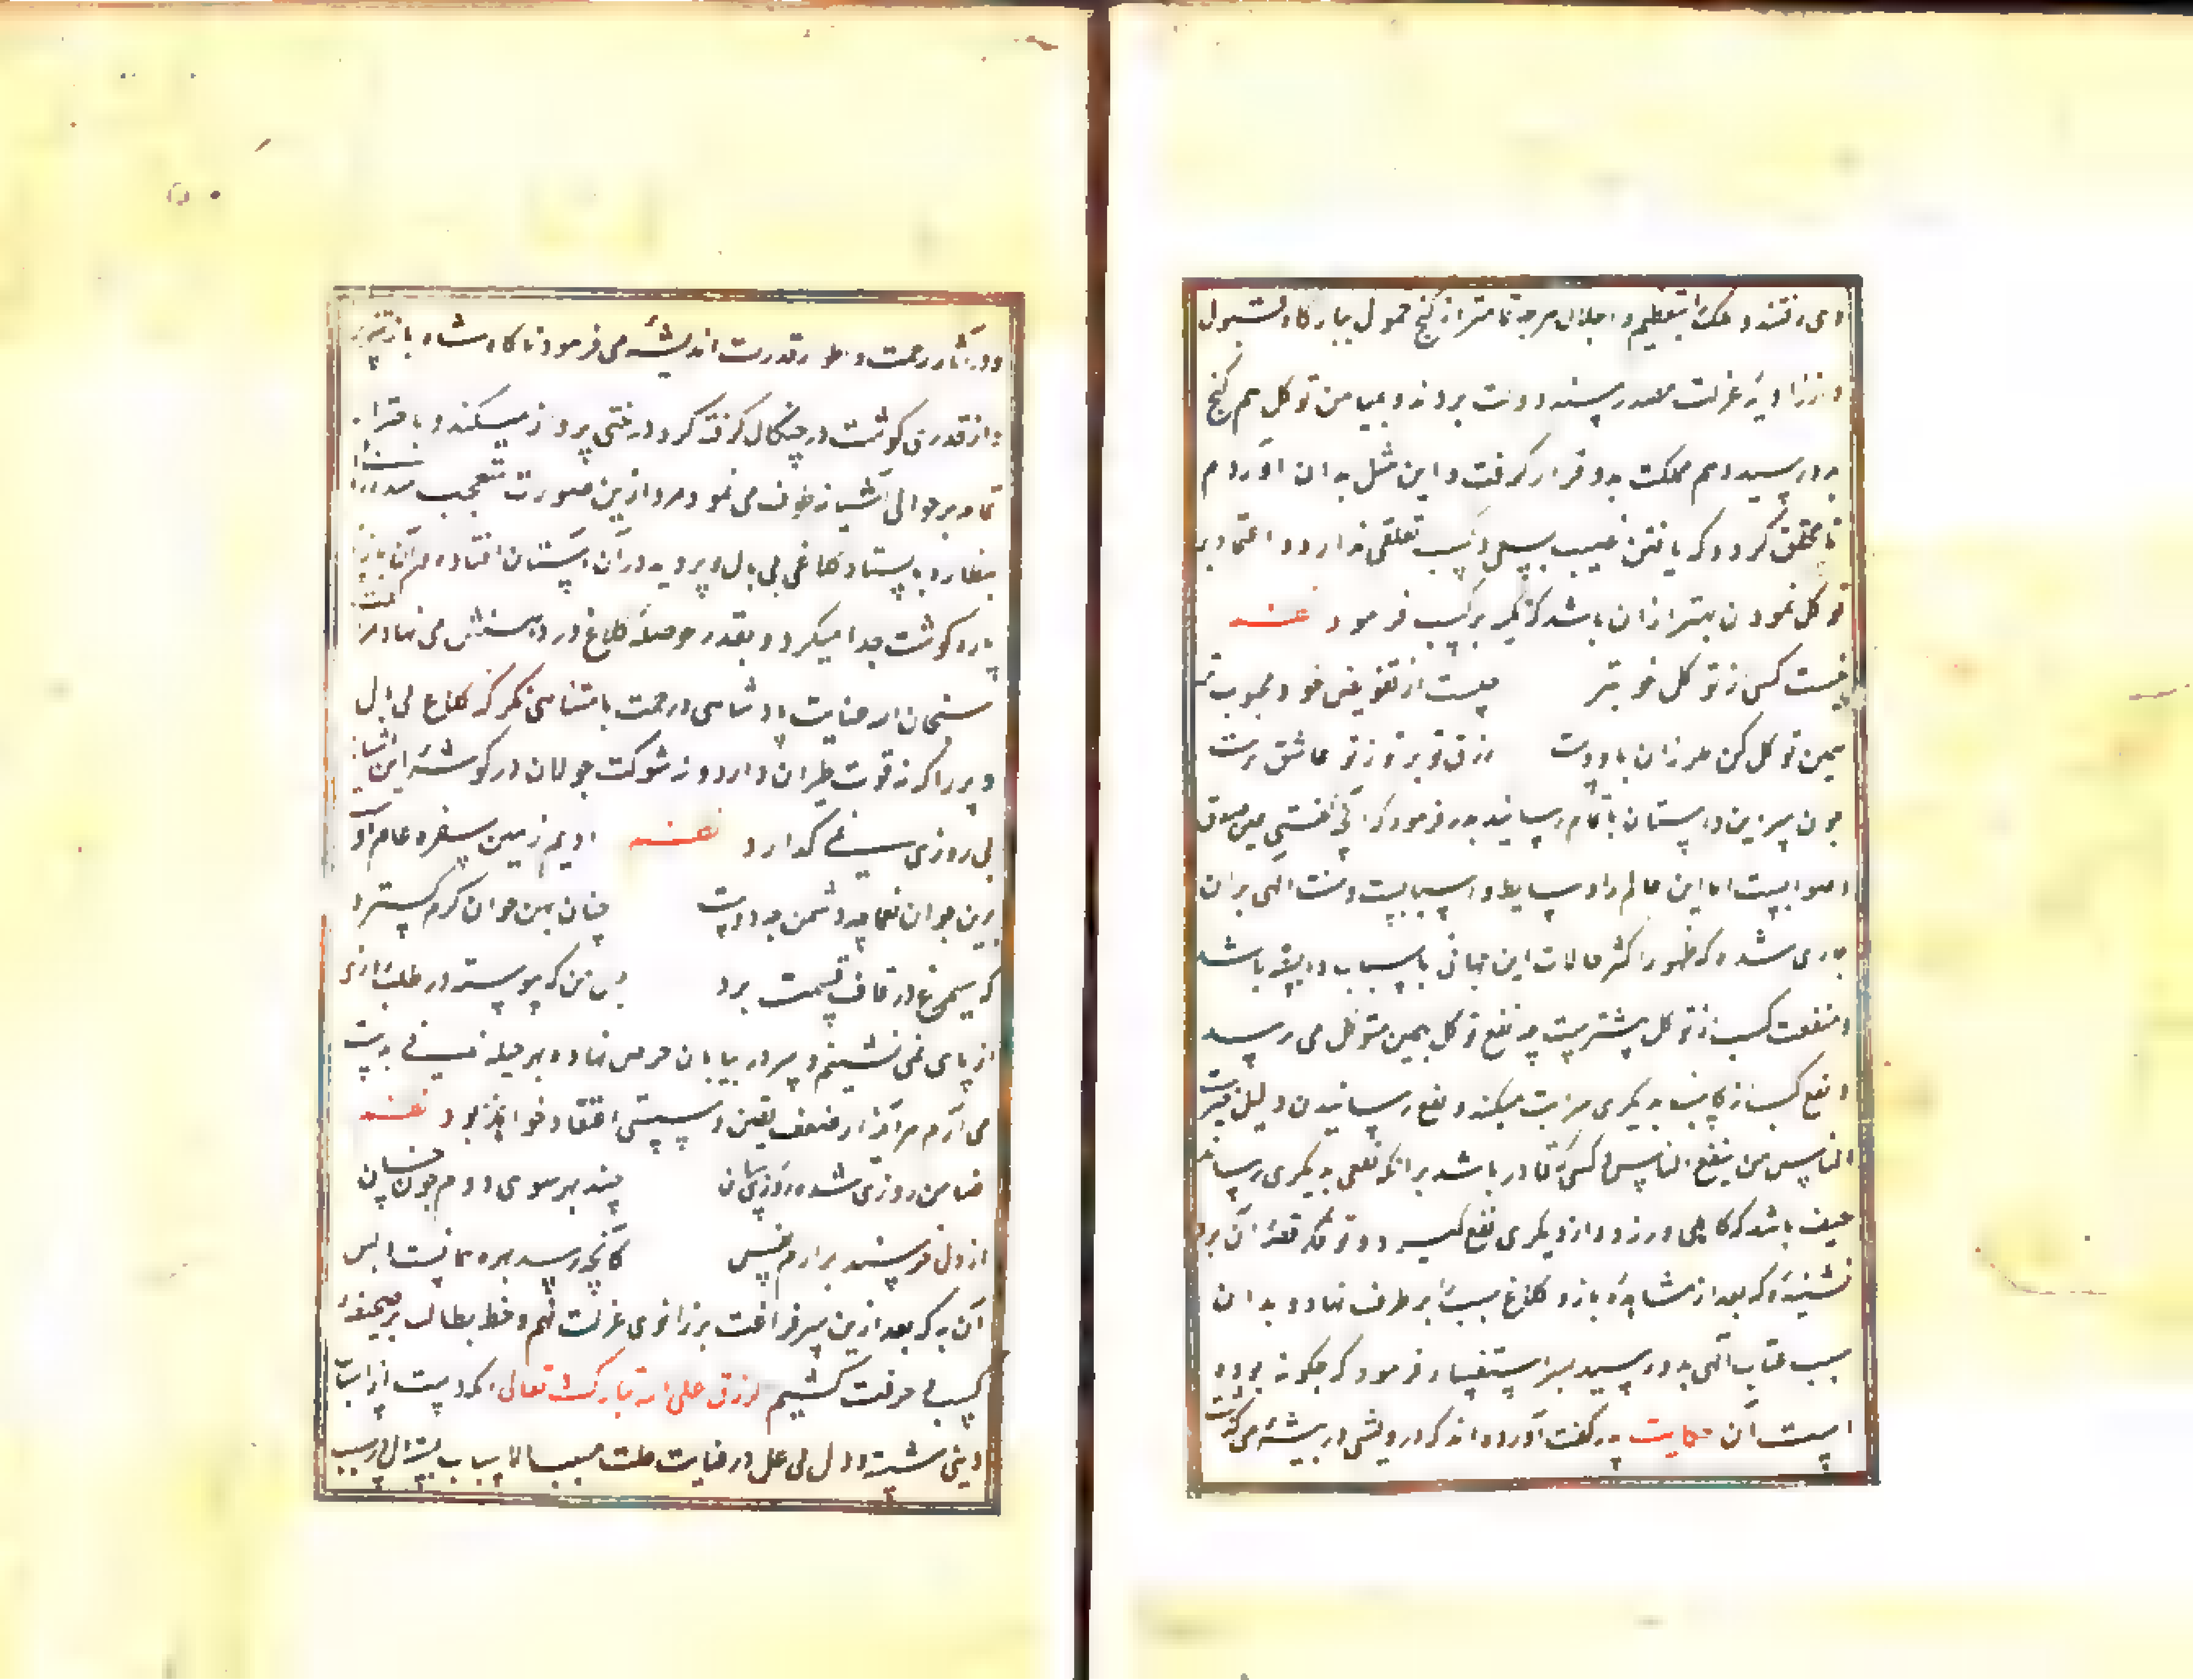 وی رفتند و ملک را بتعظیم و اجلال هرچه تمامتر از کنج خمول ببارگاه قبول
و از زاویه عزلت بصدر مسند دولت بردند و بمیامن توکل هم گنج
بدو رسید و هم مملکت بدو قرار گرفت و این مثل بدان آوردم
تا محقق گردد که یافتن نصیب بسعی و کسب تعلقی ندارد و اعتماد بر
توکل نمودن بهتر ازان باشد که تکیه بر کسب فرمود
نیست کسبی ز توکل خوبتر چیست از تفویض خود محبوب تر
همین توکل کن ملرزان پا و دست رزق تو بر تو ز تو عاشق ترست
چون پسر این داستان باتمام رسانید پدر فرمود که آنچه گفتی عین صدق
و صوابست اما این عالم را وسایط و اسبابیست و سنت الهی بران
جاری شده که ظهور اکثر حالات این جهانی باسباب وابسته باشد
و منفعت کسب از توکل بیشترست چه نفع توکل بهمین متوکل می رسد
و نفع کسب از کاسب بدیگری سرایت میکند و نفع رسانیدن دلیل خیریت
الناس من ینفع الناس و کسی که قادر باشد برانکه نفعی بدیگری رساند
حیف باشد که کاهلی ورزد و از دیگری نفع گیرد و تو مگر قصه آن مرد
نشنیده که بعد از مشاهده باز و کلاغ سبب را بر طرف نهاد و بدان
سبب عتاب الهی بدو رسید پسر استفسار فرمود که چگونه بوده
است آن حکایت پدر گفت آورده اند که درویشی در بیشه می گذشت
و در آثار رحمت و اطوار قدرت اندیشه می فرمود ناگاه شاه باز تیز پر
دید قدری گوشت در چنگال گرفته گرد درختی پرواز میکند و باهتزاز
تمام بر حوالی آشیانه طوف می نمود مرد ازین صورت متعجب شده زمانی
بنظاره بایستاد کلاغی بی بال و پر دید دران آشیان افتاده و آن باز
پاره پاره گوشت جدا میکرد و بقدر حوصله کلاغ در دهنش می نهاد مرد گفت
سبحان الله عنایت پادشاهی و رحمت نامتناهی نگر که کلاغ بی بال
و پر را که نه قوت طیران دارد و نه شوکت جولان در گوشه این آشیانه
بی روزی نمی گذارد ادیم زمین سفره عام اوست
برین خوان یغما چه دشمن چه دوست چنان پهن خوان کرم گسترد
که سیمرغ در قاف قسمت برد پس من که پیوسته در طلب روزی
از پای نمی نشینم و سر در بیابان حرص نهاده بهر حیله نانی بدست
می آرم هر آینه از ضعف یقین و سستی اعتقاد خواهد بود
ضامن روزی شده روزی رسان چند بهر سوی دوم چون خسان
از دل خرسند برارم نفس کانچه رسد بهره همانست و بس
آن به که بعد ازین سر فراغت بر زانوی عزلت نهم و خط بطالت بر صحیفه
کسب و حرفت کشیم الرزق علی الله تبارک و تعالی انکه دست از اسباب
دنیوی شسته و دل بی علل در عنایت بی علت مسبب الاسباب بست